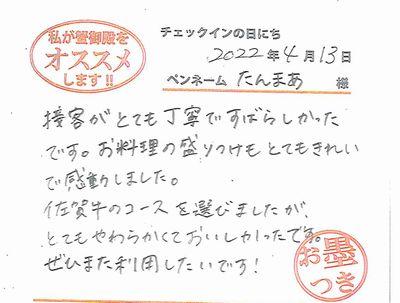 私が蟹御殿を
オススメ
します!!
チェックインの日にち
2022年4月13日
ペンネーム たんまあ 様
接客がとても丁寧ですばらしかった
です。お料理の盛りつけもとてもきれい
で感動しました。
佐賀牛のコースを選びましたが、
とてもやわらかくておいしかったです。
ぜひまた利用したいです!
お墨
つき